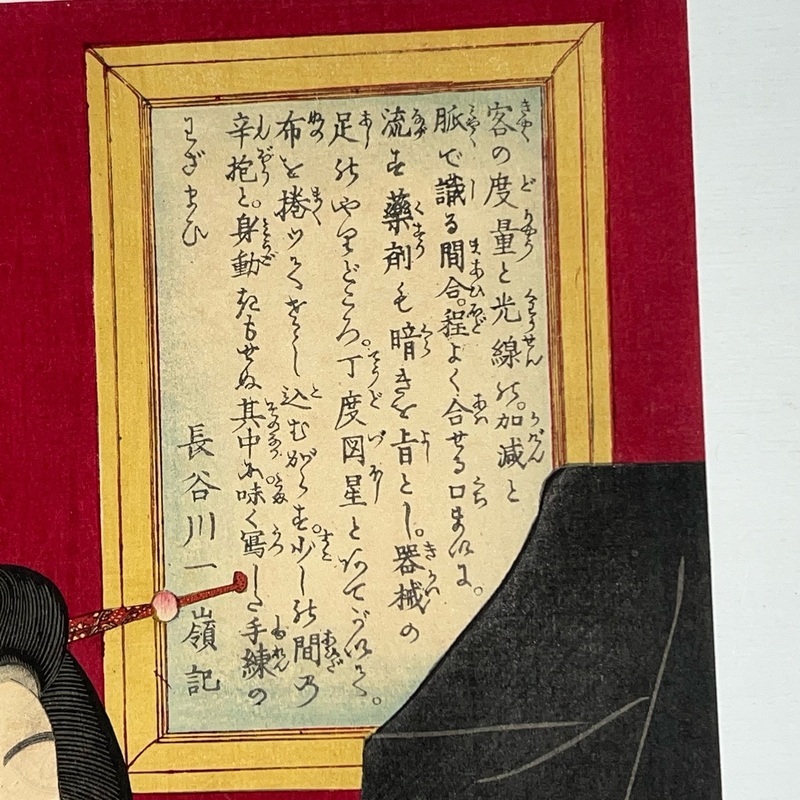 客の度量と光線の。加減と
脈で識る間合。程よく合せる口まへに。
流す薬剤も暗きを旨とし。器械の
足のやりどころ。丁度図星とあてがひて。
布を捲つてさし込むがらす。少しの間の
辛抱と。身動きもせぬ其中に味く寫した手練の
わざまひ
長谷川一嶺記